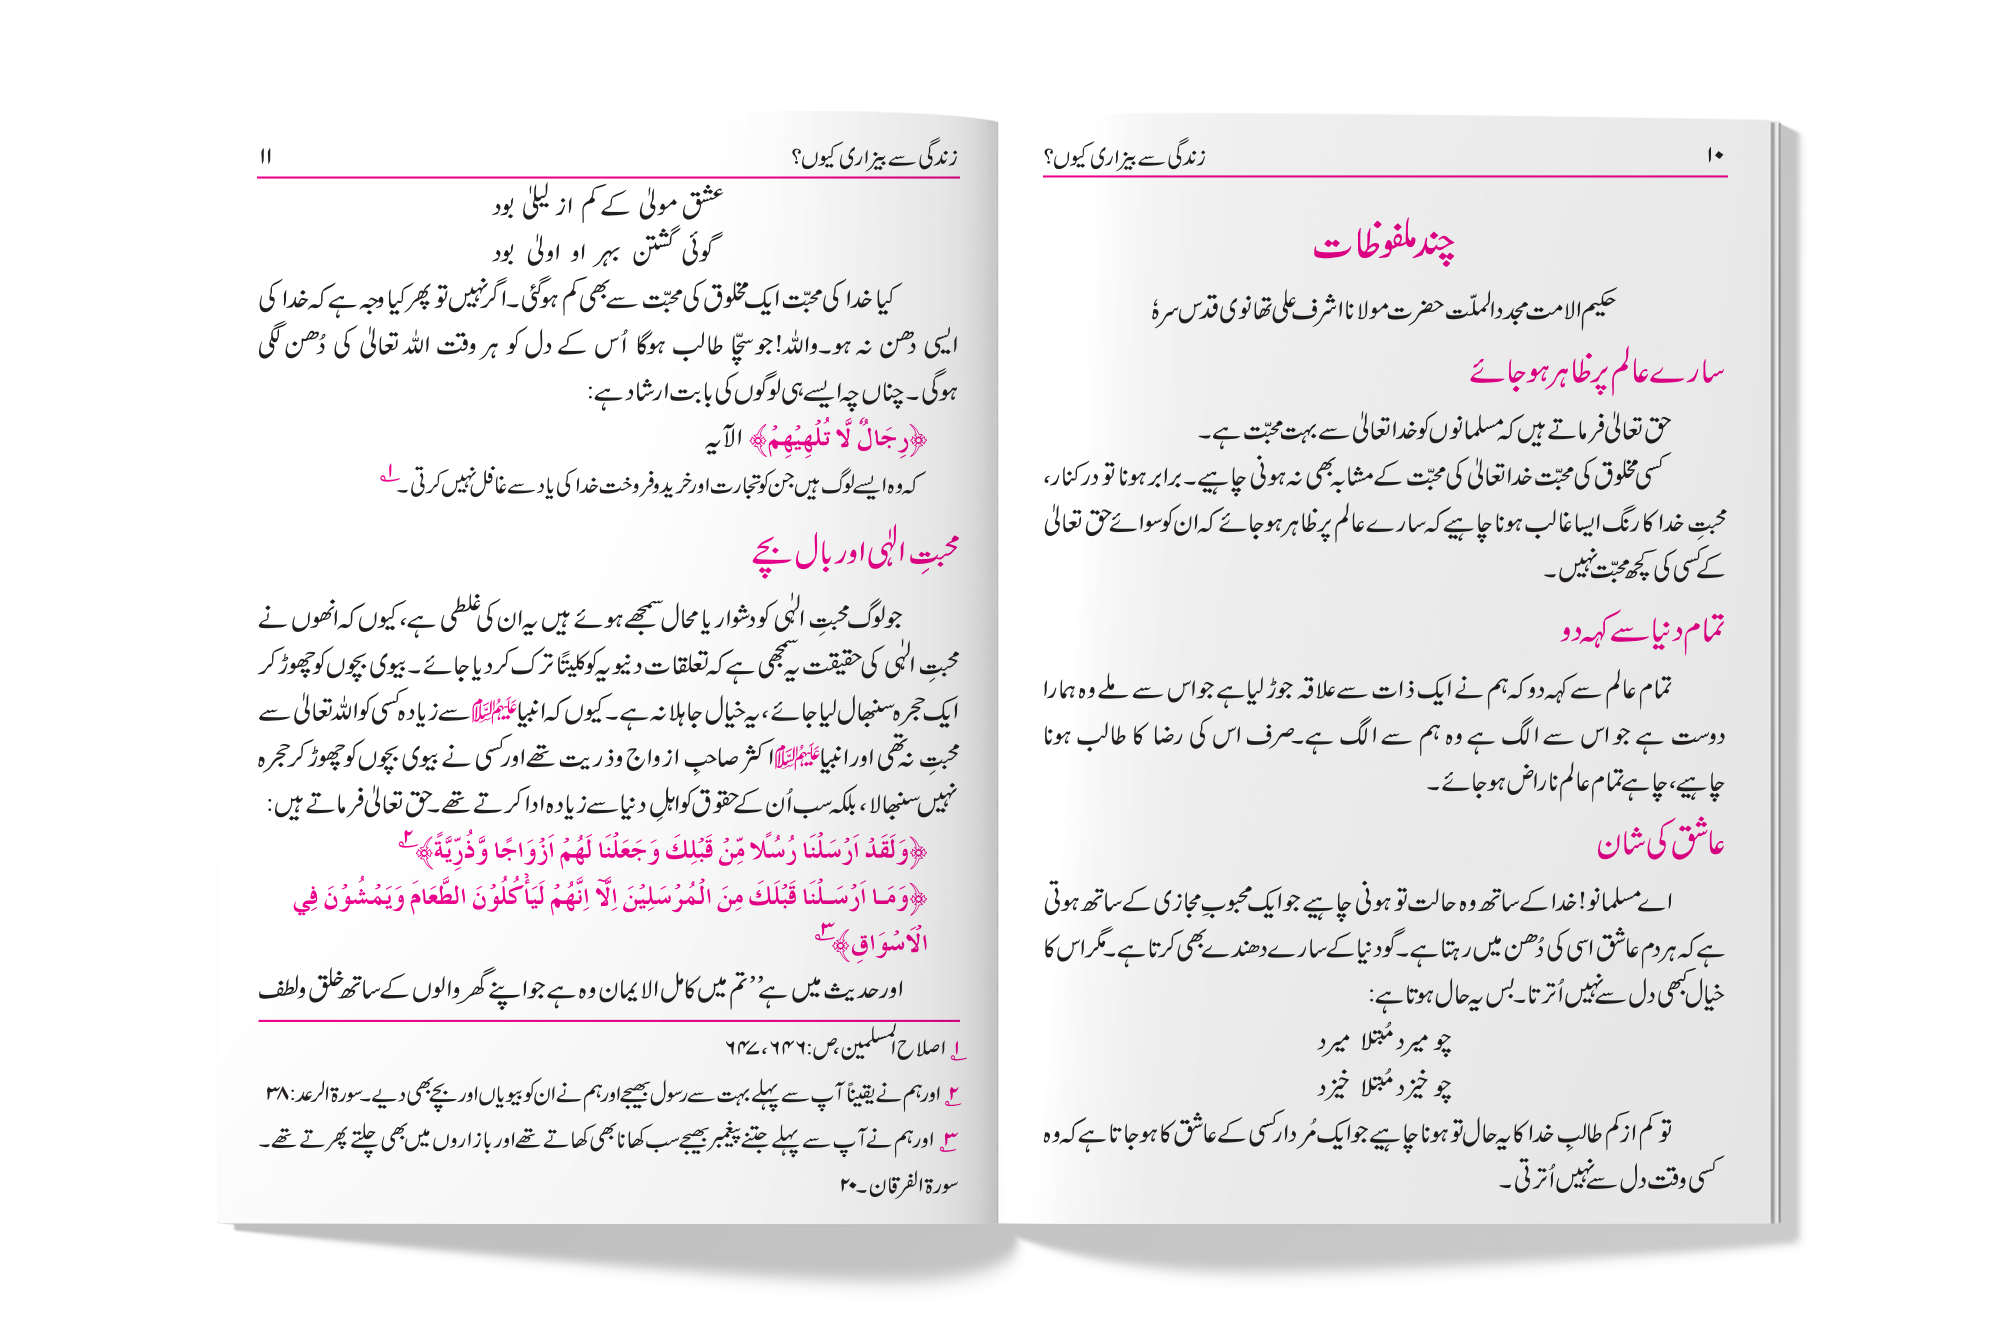 ۱۰
زندگی سے بیزاری کیوں؟
چند ملفوظات
حکیم الامت مجدد الملّت حضرت مولانا اشرف علی تھانوی قدس سرہٗ
سارے عالم پر ظاہر ہو جائے
حق تعالیٰ فرماتے ہیں کہ مسلمانوں کو خدا تعالیٰ سے بہت محبّت ہے۔
کسی مخلوق کی محبّت خدا تعالیٰ کی محبّت کے مشابہ بھی نہ ہونی چاہیے۔ برابر ہونا تو درکنار،
محبتِ خدا کا رنگ ایسا غالب ہونا چاہیے کہ سارے عالم پر ظاہر ہو جائے کہ ان کو سوائے حق تعالیٰ
کے کسی کی کچھ محبّت نہیں۔
تمام دنیا سے کہہ دو
تمام عالم سے کہہ دو کہ ہم نے ایک ذات سے علاقہ جوڑ لیا ہے جو اس سے ملے وہ ہمارا
دوست ہے جو اس سے الگ ہے وہ ہم سے الگ ہے۔ صرف اس کی رضا کا طالب ہونا
چاہیے، چاہے تمام عالم ناراض ہو جائے۔
عاشق کی شان
اے مسلمانو! خدا کے ساتھ وہ حالت تو ہونی چاہیے جو ایک محبوبِ مجازی کے ساتھ ہوتی
ہے کہ ہر دم عاشق اسی کی دُھن میں رہتا ہے۔ گو دنیا کے سارے دھندے بھی کرتا ہے۔ مگر اس کا
خیال کبھی دل سے نہیں اُترتا۔ بس یہ حال ہوتا ہے:
چو میرد مُبتلا میرد
چو خیزد مُبتلا خیزد
تو کم از کم طالبِ خدا کا یہ حال تو ہونا چاہیے جو ایک مُردار کسی کے عاشق کا ہو جاتا ہے کہ وہ
کسی وقت دل سے نہیں اُترتی۔
زندگی سے بیزاری کیوں؟
۱۱
عشق مولیٰ کے کم از لیلیٰ بود
گوئی گشتن بہر او اولیٰ بود
کیا خدا کی محبّت ایک مخلوق کی محبّت سے بھی کم ہو گئی۔ اگر نہیں تو پھر کیا وجہ ہے کہ خدا کی
ایسی دھن نہ ہو۔ واللہ! جو سچّا طالب ہوگا اُس کے دل کو ہر وقت اللہ تعالیٰ کی دُھن لگی
ہوگی۔ چناں چہ ایسے ہی لوگوں کی بابت ارشاد ہے:
﴿رِجَالٌ لَّا تُلْهِيْهِمْ﴾ الآیہ
کہ وہ ایسے لوگ ہیں جن کو تجارت اور خرید و فروخت خدا کی یاد سے غافل نہیں کرتی۔ ۱
محبتِ الٰہی اور بال بچے
جو لوگ محبتِ الٰہی کو دشوار یا محال سمجھے ہوئے ہیں یہ ان کی غلطی ہے، کیوں کہ انھوں نے
محبتِ الٰہی کی حقیقت یہ سمجھی ہے کہ تعلقات دنیویہ کو کلیتًا ترک کر دیا جائے۔ بیوی بچوں کو چھوڑ کر
ایک حجرہ سنبھال لیا جائے، یہ خیال جاہلانہ ہے۔ کیوں کہ انبیا علیہم السلام سے زیادہ کسی کو اللہ تعالیٰ سے
محبت نہ تھی اور انبیا علیہم السلام اکثر صاحبِ ازواج وذریت تھے اور کسی نے بیوی بچوں کو چھوڑ کر حجرہ
نہیں سنبھالا، بلکہ سب اُن کے حقوق کو اہلِ دنیا سے زیادہ ادا کرتے تھے۔ حق تعالیٰ فرماتے ہیں:
﴿وَلَقَدْ اَرْسَلْنَا رُسُلًا مِّنْ قَبْلِكَ وَجَعَلْنَا لَهُمْ اَزْوَاجًا وَّذُرِّيَّةً﴾ ۲
﴿وَمَا اَرْسَلْنَا قَبْلَكَ مِنَ الْمُرْسَلِيْنَ اِلَّا اِنَّهُمْ لَيَأْكُلُوْنَ الطَّعَامَ وَيَمْشُوْنَ فِي
الْاَسْوَاقِ﴾ ۳
اور حدیث میں ہے ’’تم میں کامل الایمان وہ ہے جو اپنے گھر والوں کے ساتھ خلق ولطف
۱ اصلاح المسلمین، ص: ۶۴۶، ۶۴۷
۲ اور ہم نے یقیناً آپ سے پہلے بہت سے رسول بھیجے اور ہم نے ان کو بیویاں اور بچے بھی دیے۔ سورۃ الرعد: ۳۸
۳ اور ہم نے آپ سے پہلے جتنے پیغمبر بھیجے سب کھانا بھی کھاتے تھے اور بازاروں میں بھی چلتے پھرتے تھے۔
سورۃ الفرقان۔ ۲۰